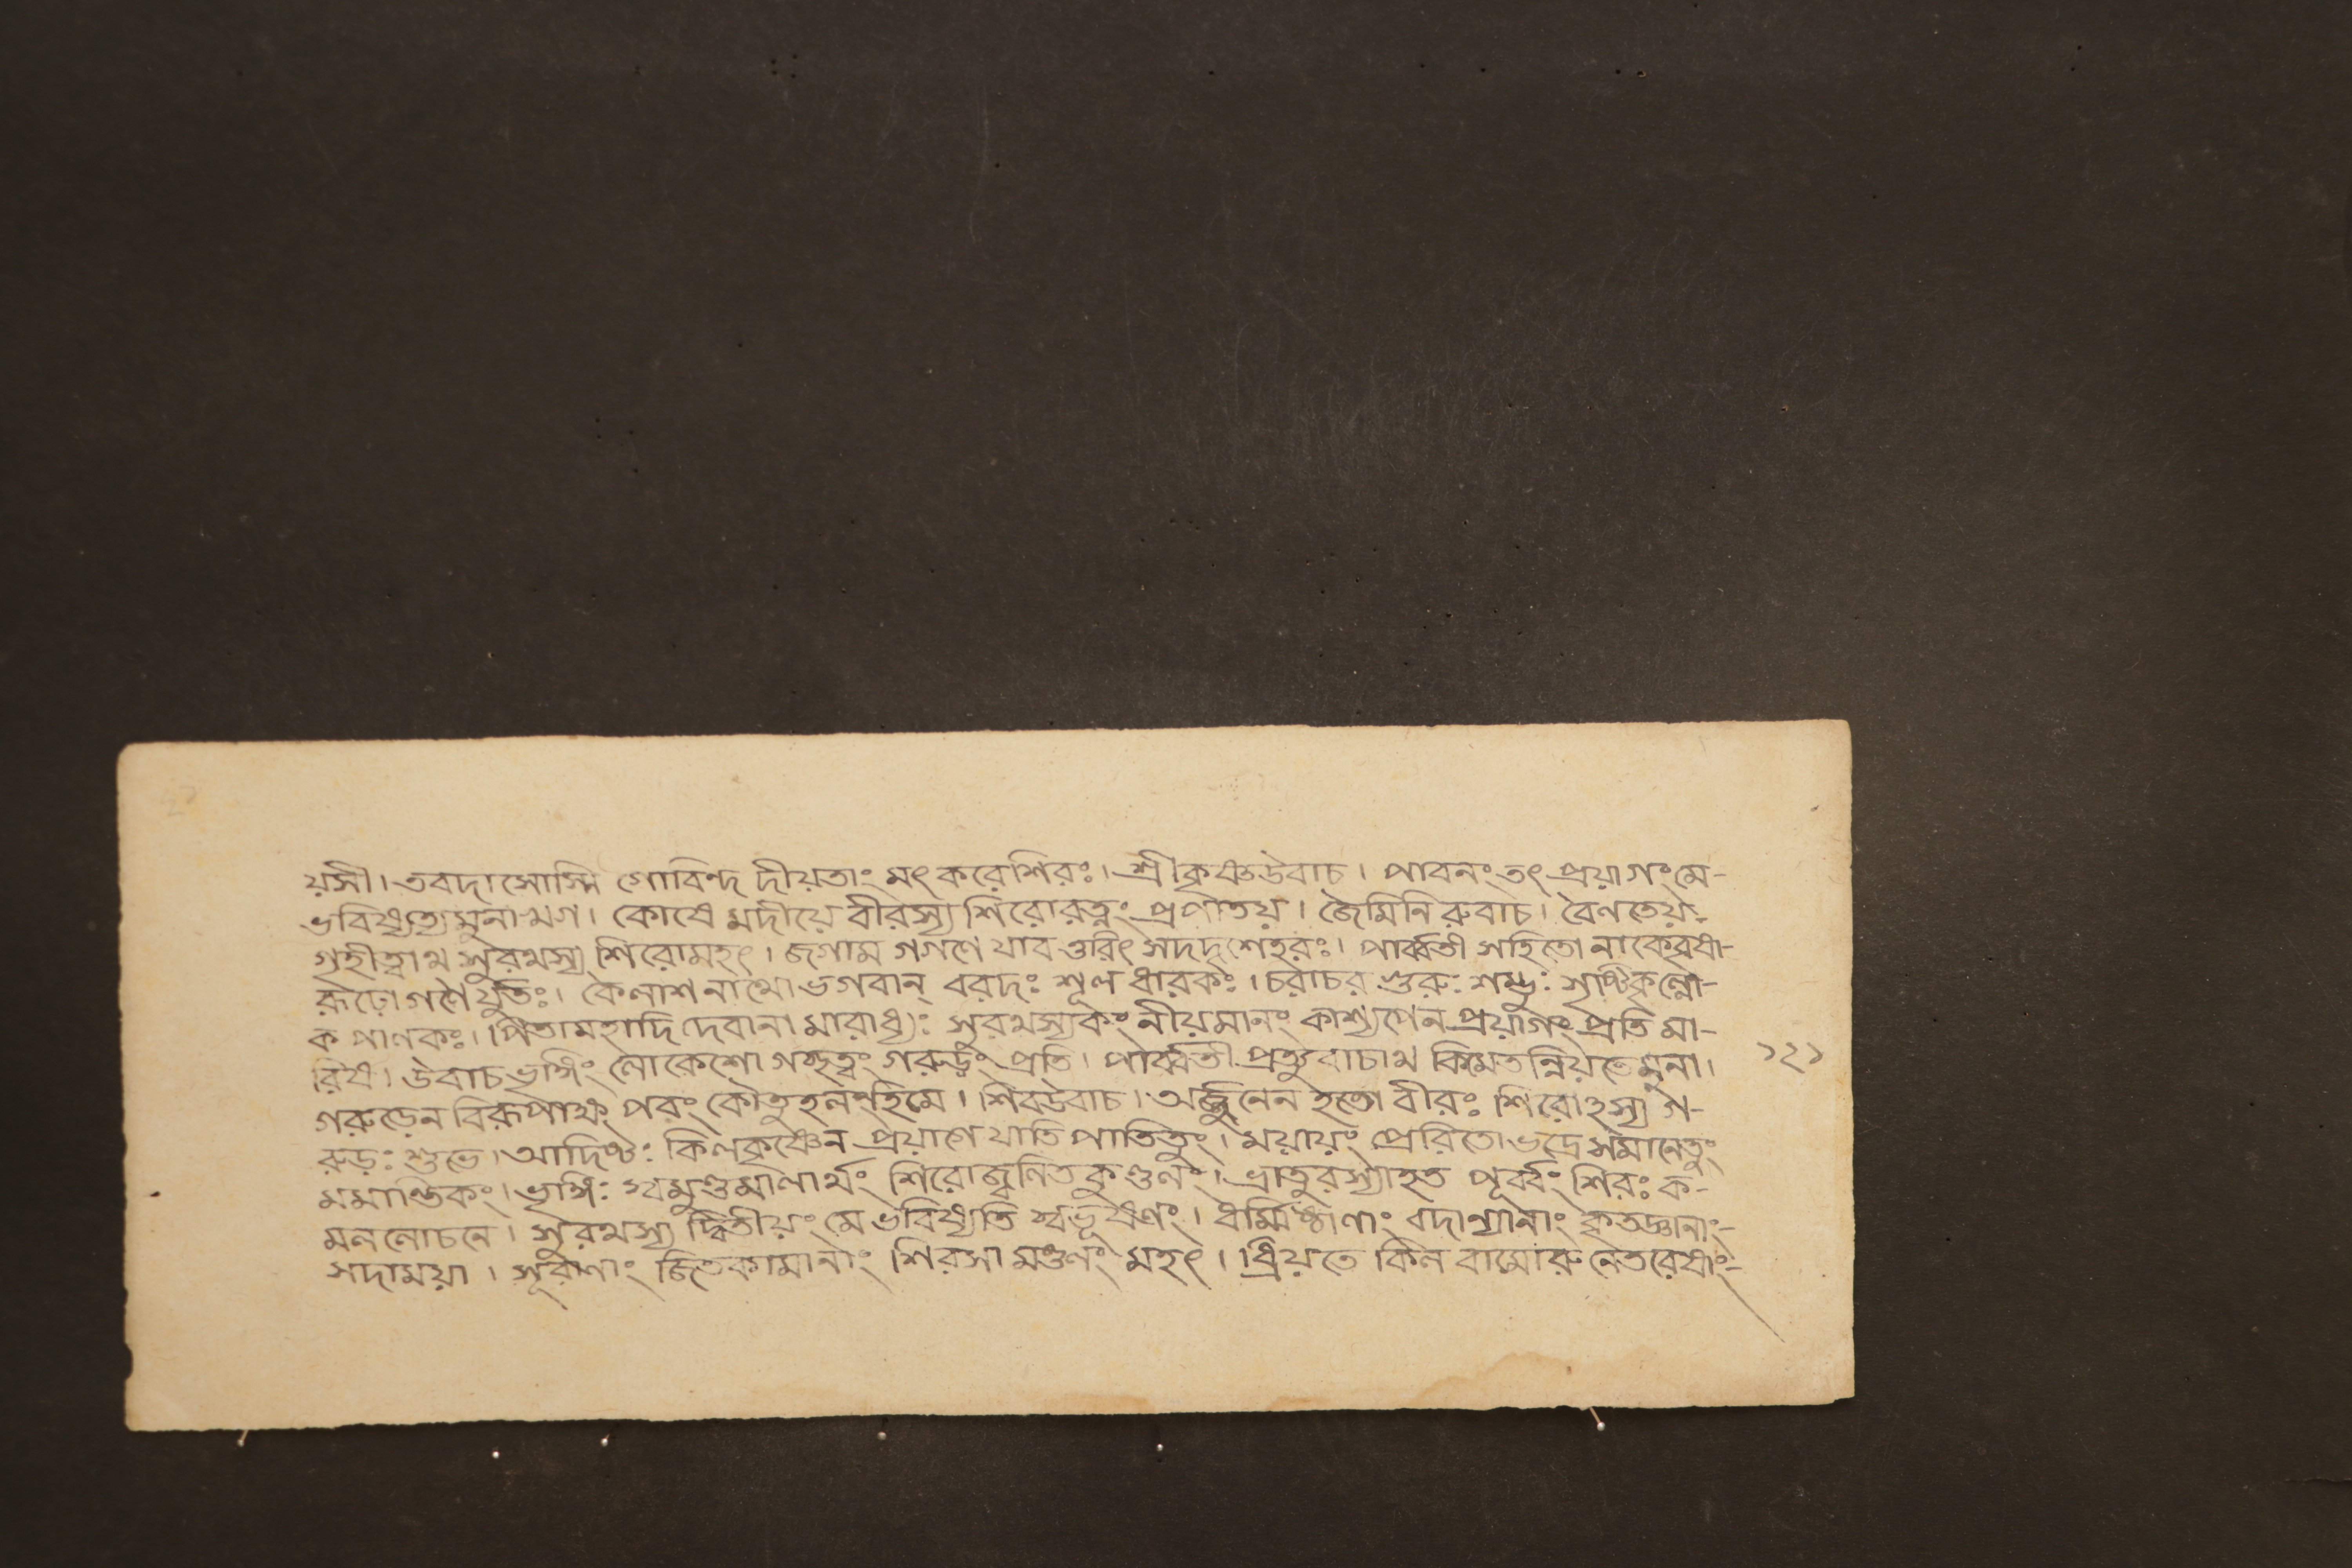 য়সী। তবদাসোস্মি গোবিন্দ দীয়তাং মৎ করে শিরঃ। শ্রীকৃষ্ণউবাচ। পাবনং তৎ প্রয়াগং মে-
ভবিষ্যত্যমুনা খগ। কোষে মদীয়ে বীরস্য শিরোরত্নং প্রপাতয়। জৈমিনিরুবাচ। বৈণতেয়-
গৃহীত্বাথ সুরথস্য শিরোমহৎ। জগাম গগণে যাবত্তরিৎ সদদৃশেহরঃ। পার্ব্বতী সহিতো নাকেবৃষা-
রূঢ়ো গণৈর্যুক্তঃ। কৈলাশ নাথো ভগবান্ বরদঃ শূল ধারকঃ। চরাচর গুরুঃ শম্ভুঃ সৃষ্টিকৃল্লো-
ক পালকঃ। পিতামহাদি দেবানামারাধ্যঃ সুরথস্যকং নীয়মানং কাশ্যপেন প্রয়াগং প্রতি মা-
রিষ। উবাচ ভৃঙ্গিং লোকেশো গচ্ছত্বং গরুড়ং প্রতি। পার্ব্বতী প্রত্যুবাচাথ কিমেতন্নিয়তেমুনা।
গরুড়েন বিরূপাক্ষ পরং কৌতুহলংহিমে। শিবউবাচ। অর্জ্জুনেন হতো বীরঃ শিরোঽস্য গ-
রুড়ঃ শুভে। আদিষ্টঃ কিলকৃষ্ণেন প্রয়াগে যাতি পাতিতুং। ময়ায়ং প্রেরিতো ভদ্রে সমানেতুং
মমান্তিকং। ভৃঙ্গিঃ স্বমুণ্ডমালার্থং শিরোজ্বলিত কুণ্ডলং। ভ্রাতুরস্যাহৃত পূর্ব্বং শিরঃ ক-
মললোচনে। সুরথস্য দ্বিতীয়ং মে ভবিষ্যতি স্বভূষণং। ধর্ম্মিষ্ঠাণাং বদাণ্যানাং কৃতজ্ঞানাং-
সদাময়া। সূরাণাং জিতকামানাং শিরসা মণ্ডণং মহৎ। ধ্রিয়তে কিল বামোরু নেতরেষাং-
১২১